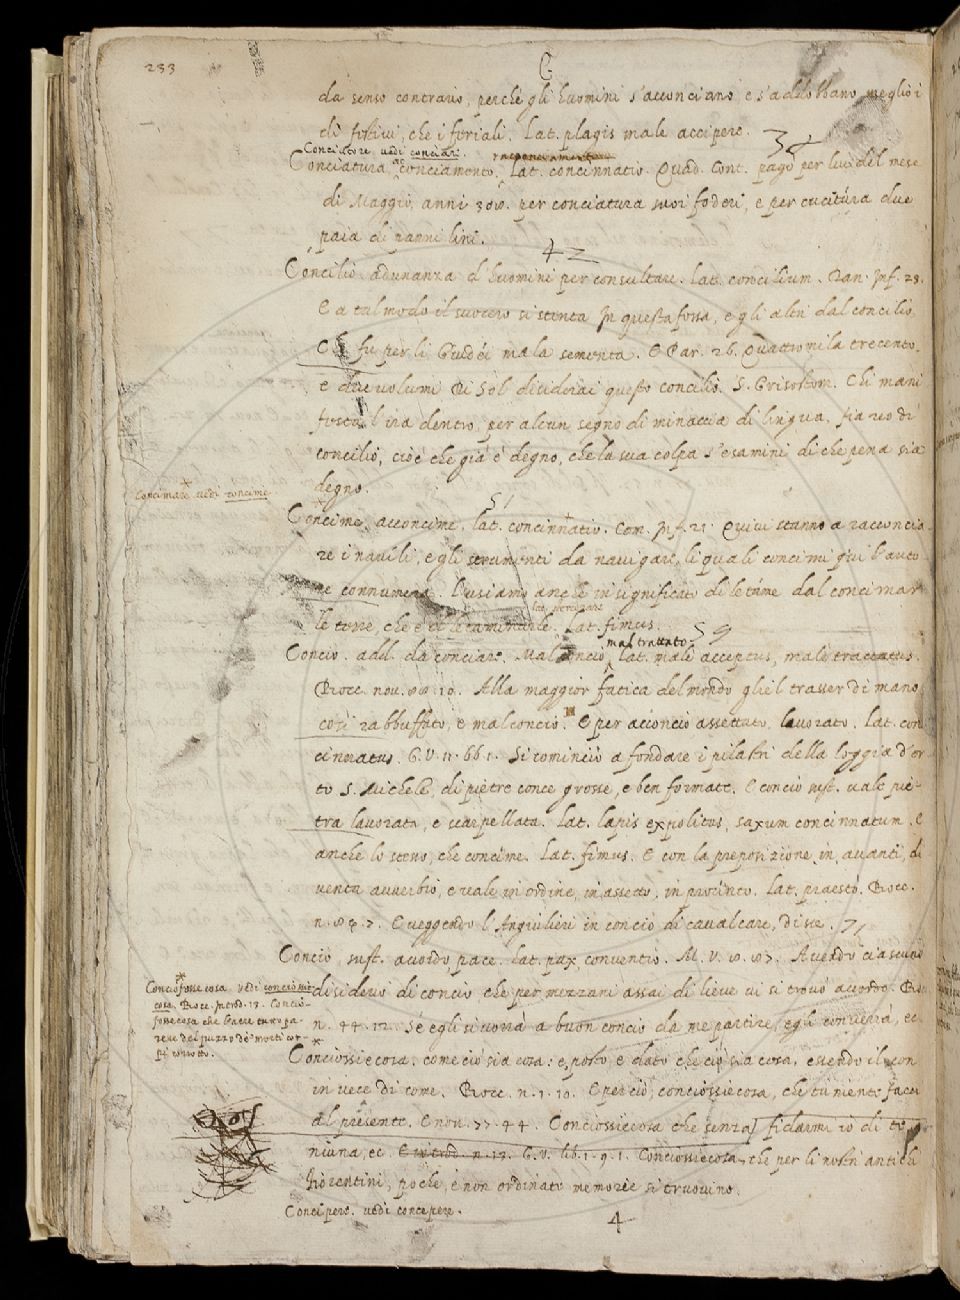 233
C
da senso contrario, perché gli huomini s'acconciano, e s'addobbano meglio i
dì festivi, che i feriali. Lat. plagis male accipere.
Conciatore vedi conciari.
Conciatura, conciamento, Lat. concinnatio. Quad. Cont. pagò per lui del mese
di Maggio, anni 300. per conciatura suoi foderi, e per cucitura due
paia di panni lini.
42
Concilio. adunanza d'huomini per consultare. Lat. concilium. Dan. Inf. 23.
E a tal modo il suocero si stenta In questa fossa, e gli altri dal concilio,
Che fu per li Giudéi mala sementa. E Par. 26. Quattromila trecento,
e due volumi Di Sol desiderai questo concilio. S. Grisostom. Chi mani
festa l'ira dentro, per alcun segno di minaccia di lingua, fia reo di
concilio, cioè che già è degno, che la sua colpa s'esamini di che pena sia
degno.
Concimare vedi concime.
51
Concime, acconcime. Lat. concinnatio. Com. Inf. 21. Quivi stanno a racconcia-
re i navili, e gli strumenti da navigare, li quali concimi qui l'auto
re connumera. Usiamo anche in significato di letáme dal concimar
le terre, che è Lat. fimus.
59
maltrattato
Concio. add. da conciare. Malconcio, Lat. malè acceptus, malè tractatus.
Bocc. nov. 88. 10. Alla maggior fatica del mondo gliel trasser di mano
così rabbuffato, e malconcio. E per acconcio assettato, lavorato. Lat. con
cinnatus. G. V. 11. 66 1. Si cominciò a fondare i pilastri della loggia d'or
to S. Michele, di pietre conce grosse, e ben formate. E concio sust. vale pie-
tra lavorata, e scarpellata. Lat. lapis expolitus, saxum concinnatum. E
anche lo stesso, che concime. Lat. fimus. E con la preposizione in, avanti, di
venta avverbio, e vale in ordine, in assetto, in procinto. Lat. praesto. Bocc.
n. 88. 7. E veggendo l'Angiulieri in concio di cavalcare, disse.
71
Concio, sust. accordo pace. Lat. pax, conventio. M. V. Avendo ciascuno
desiderio di concio che per mezzani assai di lieve vi si trovò accordo. Bocc.
n. 44. 12. Sè egli si vorrà a buon concio da me partire, egli converrà, ec.
Conciofosse cosa vedi conciossie
cosa. Bocc. Introd. 13. Concio-
fossecosa che l'aere tutto pa-
resse del puzzo de' morti cor-
pi
Conciossiecosa. come ciò sia cosa: e posto, e dato che ciò sia cosa, essendo il con
in vece di come. Bocc. n. 1. 10. E perciò, conciossiecosa, che tu niente facci
al presente. E non. 77. 44. Conciossiecosa che senza fidarmi io di te
niuna, ec. E introd. n. 13. G. V. lib. 1. 9. 1. Conciossiecosa, che per li nostri antichi
Fiorentini, poche, e non ordinate memorie si truovino.
Concipere. vedi concepere.
4